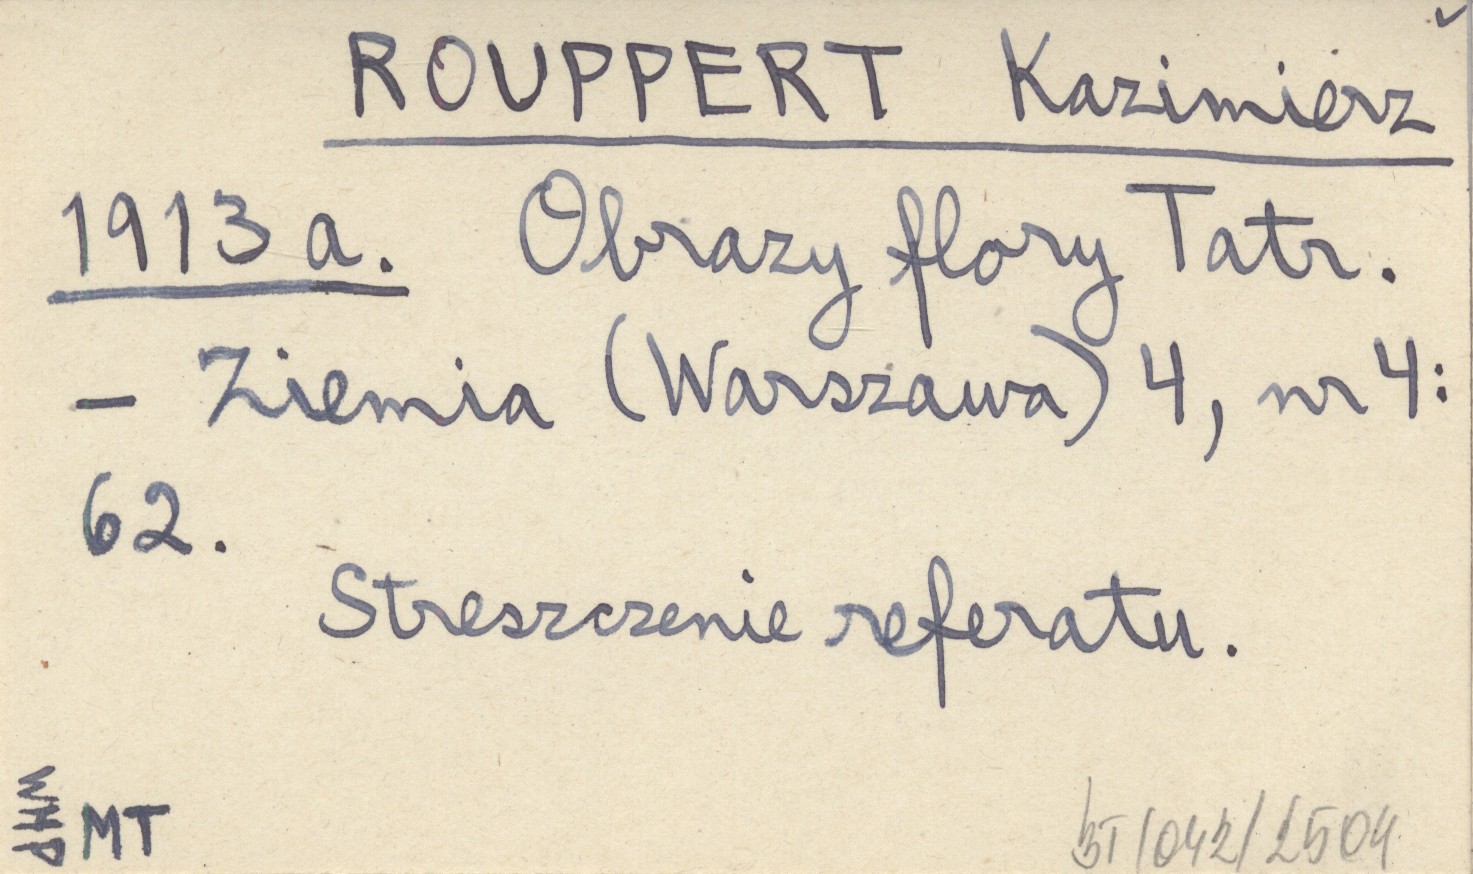 ROUPPERT Kazimierz
1913a. Obrazy flory Tatr.
– Ziemia (Warszawa) 4, nr 4:
62.
Streszczenie referatu.
WHP
MT
BT/042/2504